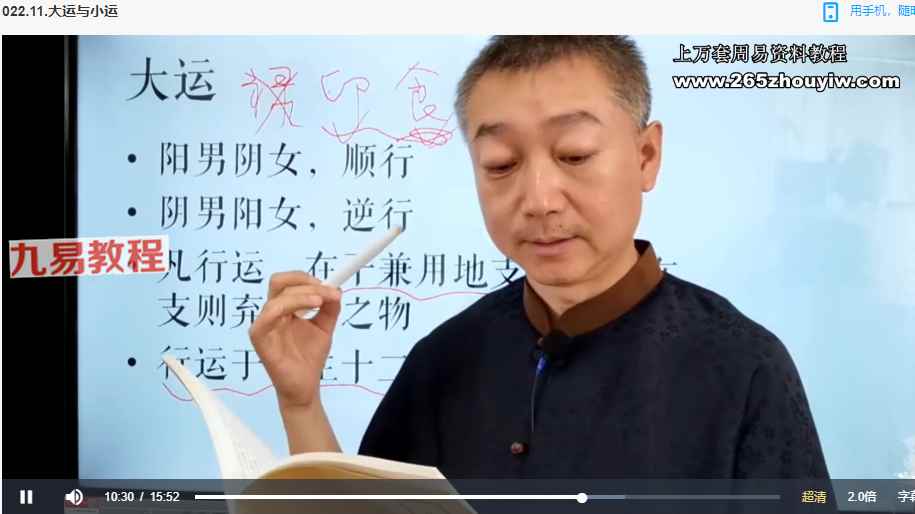 022.11.大运与小运
用手机，随时
上万套周易资料教程
www.265zhouyiw.com
大运
印 食
• 阳男阴女，顺行
• 阴男阳女，逆行
九易教程
凡行运 在干兼用地支
支则弃 之物
• 行运于 十二
10:30 / 15:52
超清
2.0倍
字幕